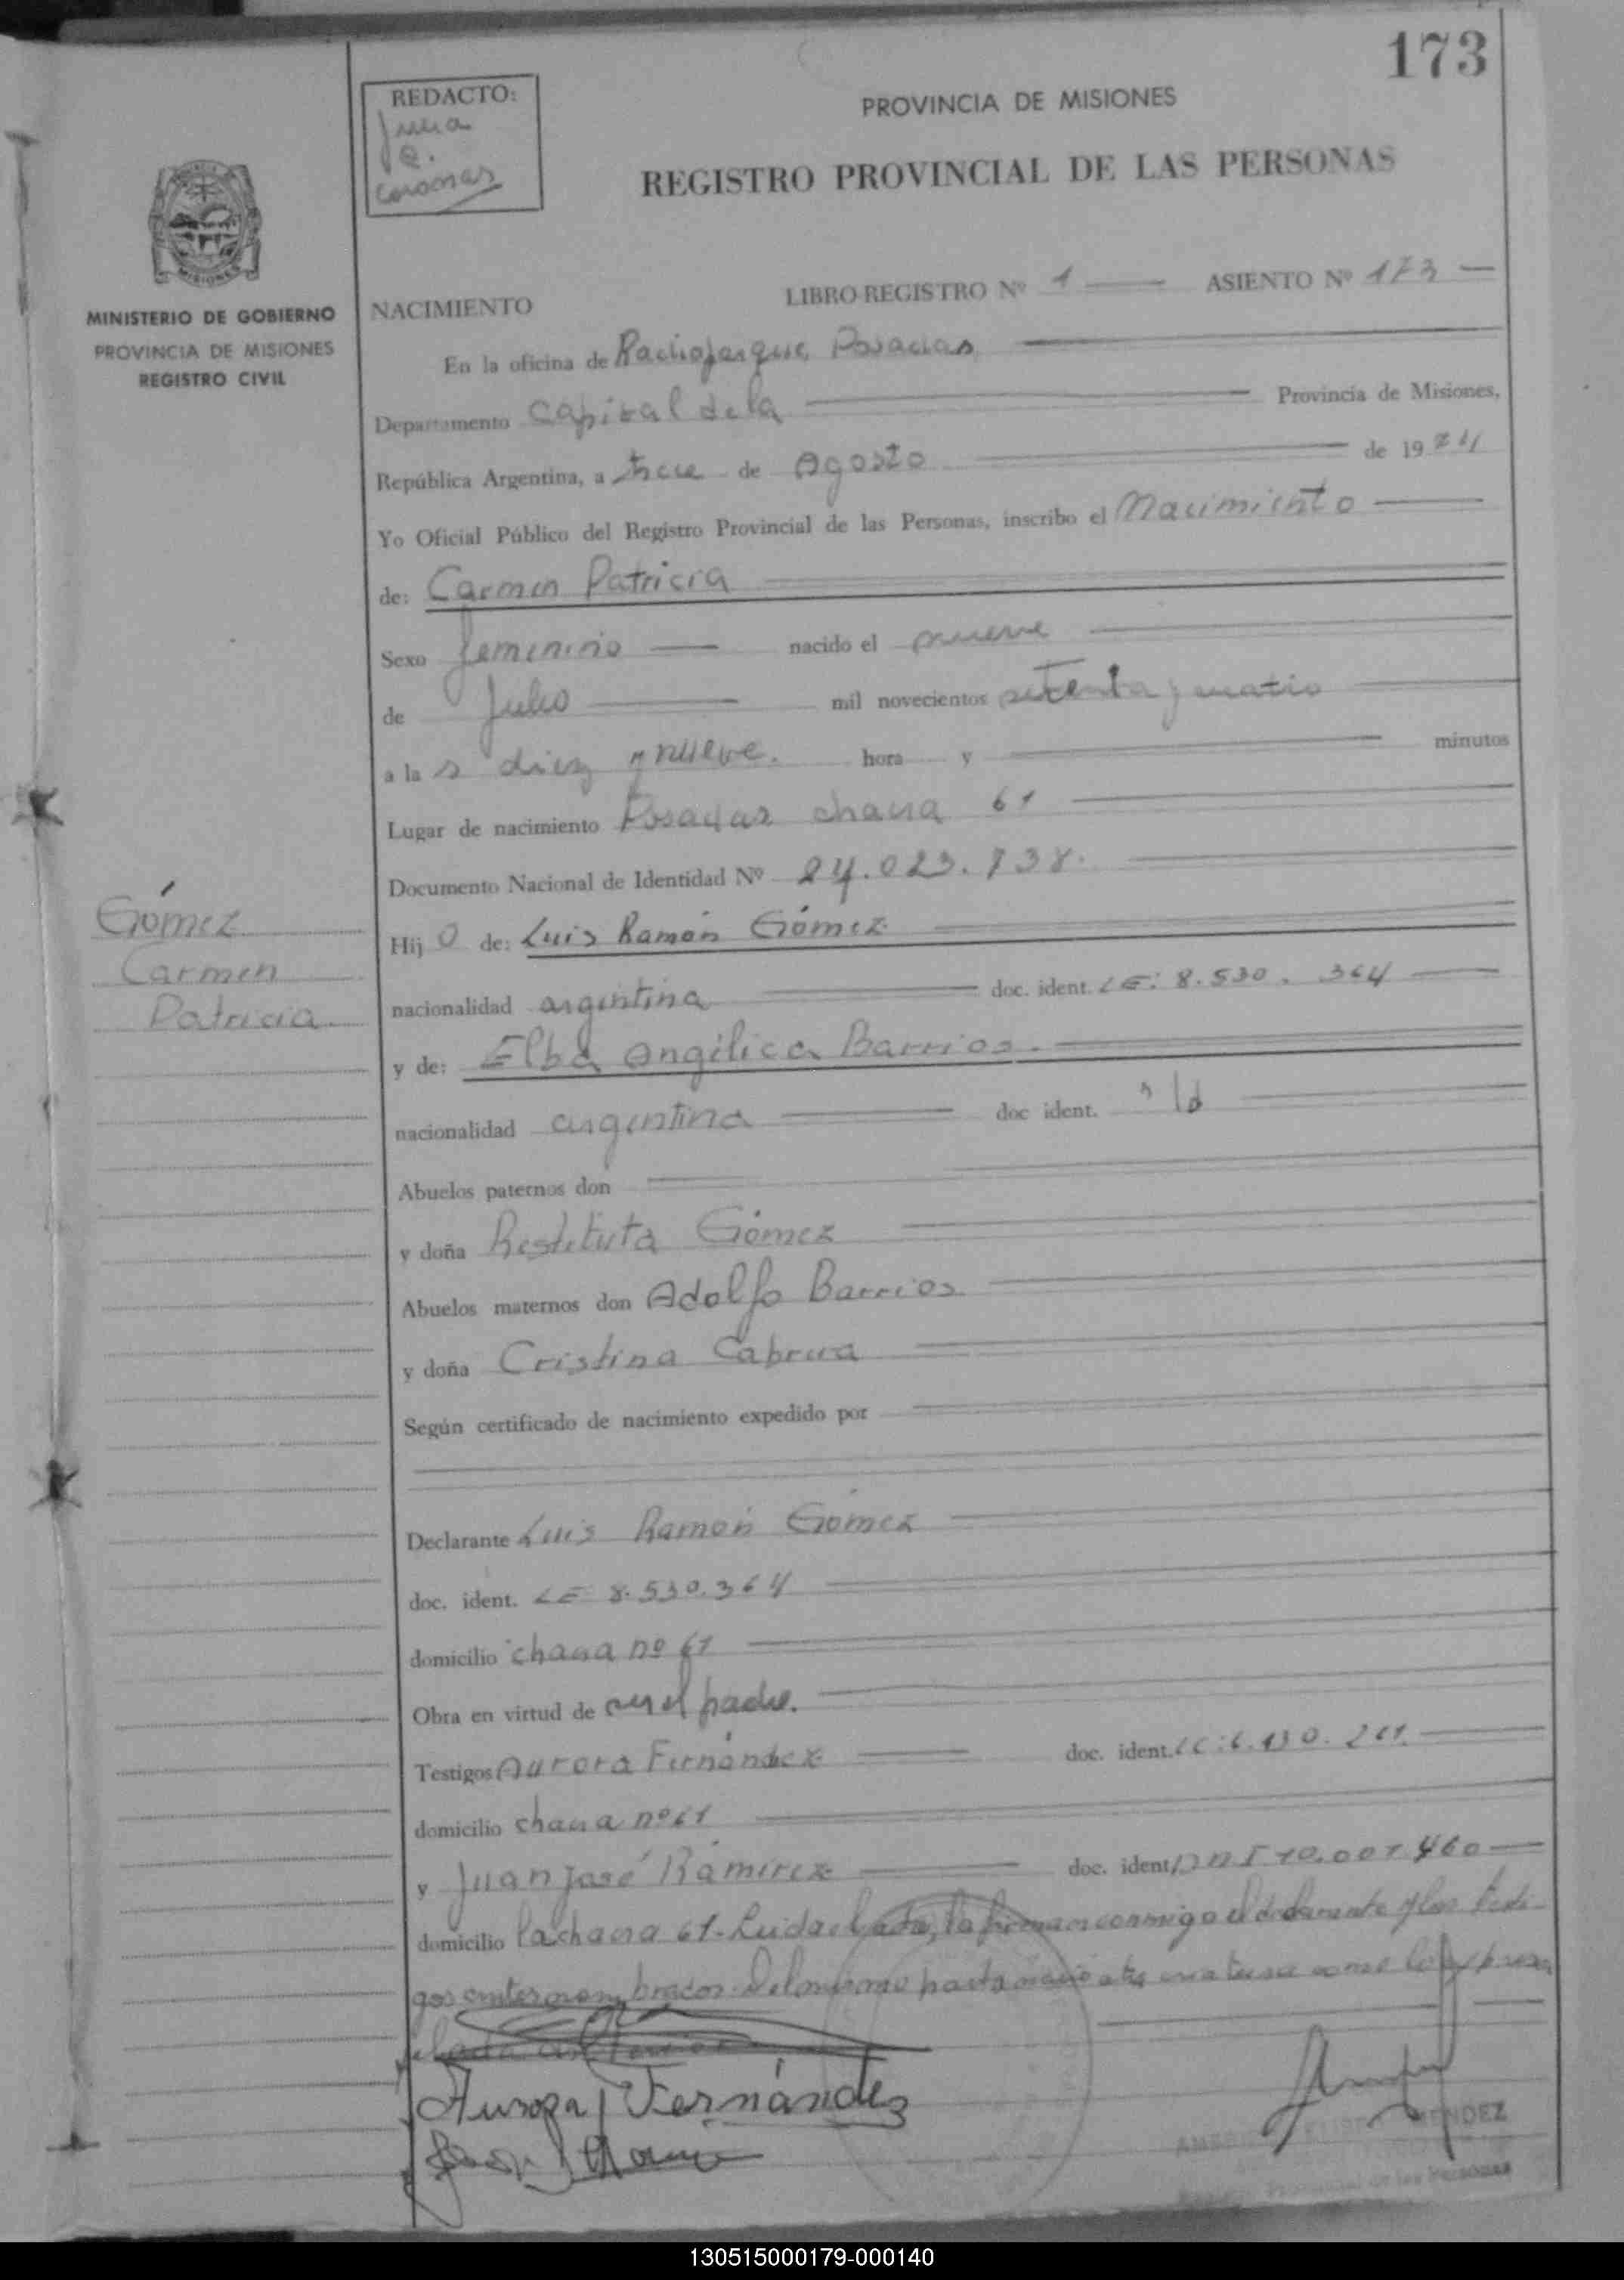 173
REDACTO:
PROVINCIA DE MISIONES
REGISTRO PROVINCIAL DE LAS PERSONAS
MISIONES
MINISTERIO DE GOBIERNO
PROVINCIA DE MISIONES
REGISTRO CIVIL
NACIMIENTO LIBRO REGISTRO Nº 1 ASIENTO Nº 173
En la oficina de Radioparque Posadas
Departamento Capital de la Provincia de Misiones,
República Argentina, a trece de Agosto de 1974
Yo Oficial Público del Registro Provincial de las Personas, inscribo el Nacimiento
de: Carmen Patricia
Sexo femenino nacido el nueve
de Julio mil novecientos setenta y cuatro
a la s diez y nueve. hora y minutos
Lugar de nacimiento Posadas chacra 61
Documento Nacional de Identidad Nº 24.023.738.
Gómez
Carmen
Patricia
Hij o de: Luis Ramón Gómez
nacionalidad argentina doc. ident. LE: 8.530.364
y de: Elba Angélica Barrios
nacionalidad argentina doc ident.
Abuelos paternos don
y doña Restituta Gómez
Abuelos maternos don Adolfo Barrios
y doña Cristina Cabrera
Según certificado de nacimiento expedido por
Declarante Luis Ramón Gómez
doc. ident. LE 8.530.364
domicilio chacra nº 61
Obra en virtud de ser el padre.
Testigos Aurora Fernández doc. ident. LC:
domicilio chacra nº 61
y Juan José Ramírez doc. ident. DNI 10.001.460
domicilio la chacra 61- Leida el acta, la firman conmigo el declarante y los testi-
gos
Aurora Fernández
130515000179-000140